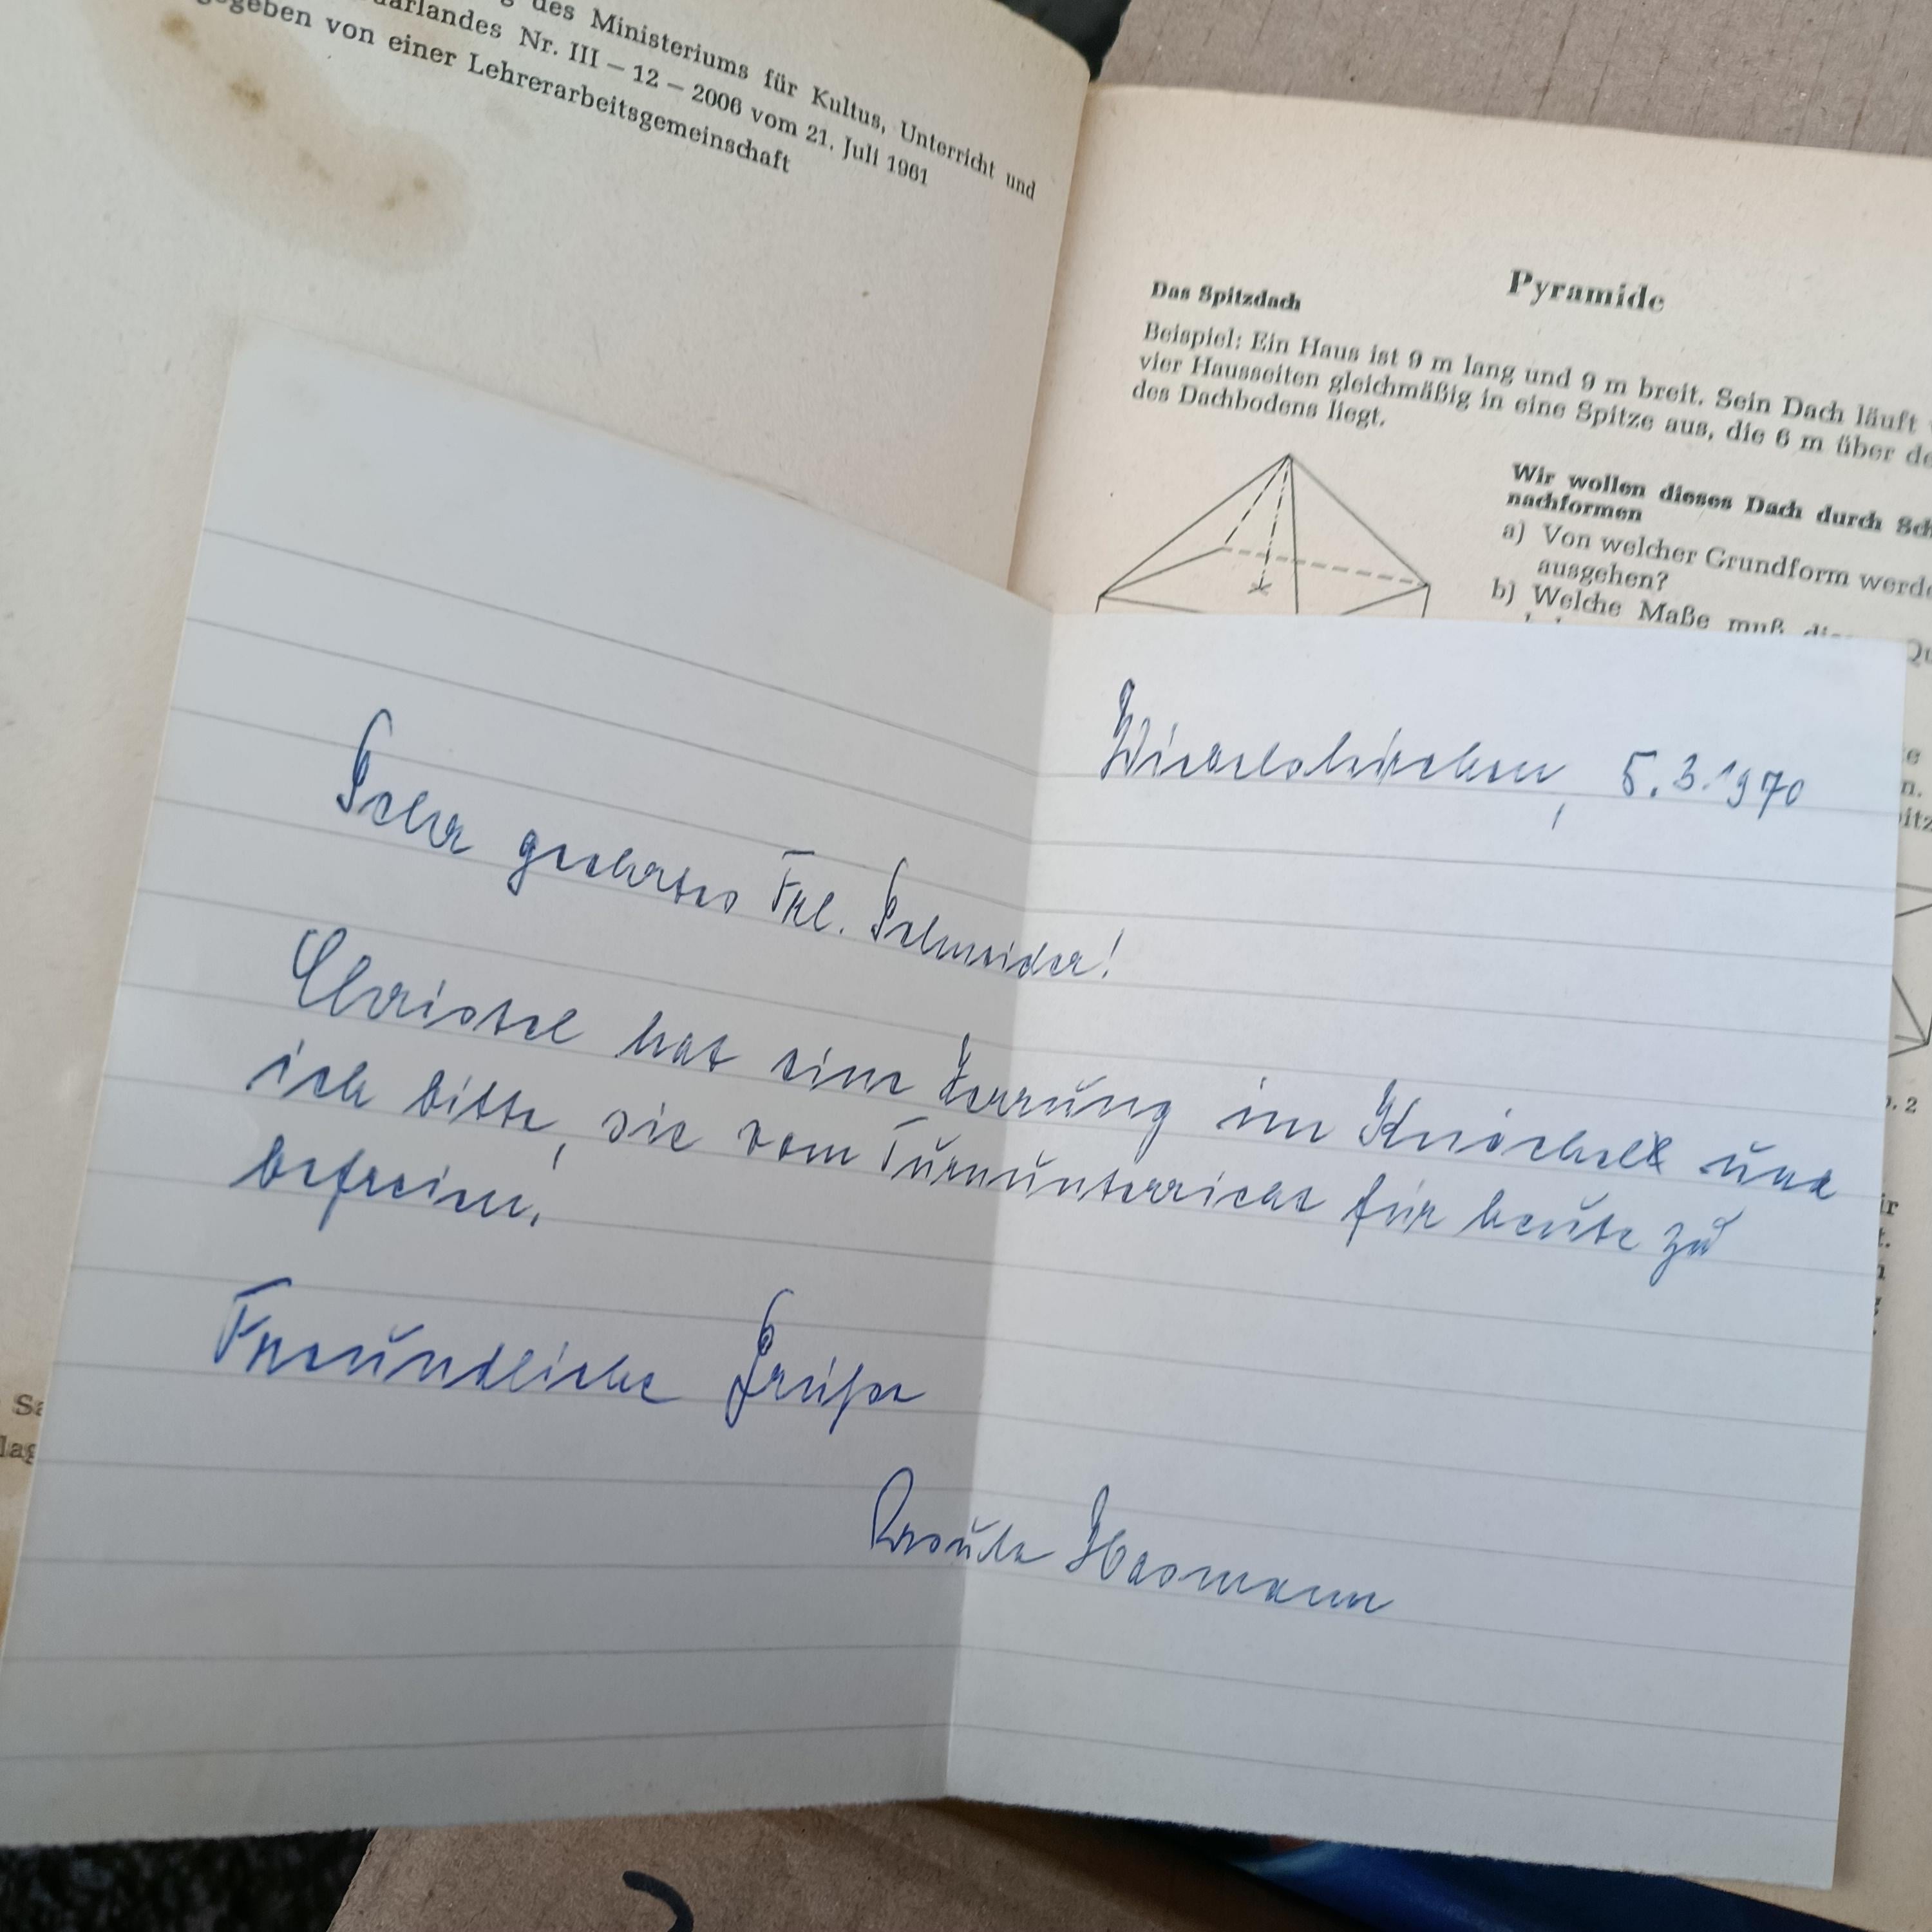 des Ministeriums für Kultus, Unterricht und
Nr. III – 12 – 2006 vom 21. Juli 1961
von einer Lehrerarbeitsgemeinschaft
Pyramide
Das Spitzdach
Beispiel: Ein Haus ist 9 m lang und 9 m breit. Sein Dach läuft
vier Hausseiten gleichmäßig in eine Spitze aus, die 6 m über
des Dachbodens liegt.
Wir wollen dieses Dach durch
nachformen
a) Von welcher Grundform
ausgehen?
b) Welche Maße muß
Wiebelskirchen, 5.3.1970
Sehr geehrtes Frl. Schneider!
Christel hat eine Zerrung im Knöchel und
ich bitte, sie vom Turnunterricht für heute zu
befreien.
Freundliche Grüße
Ursula